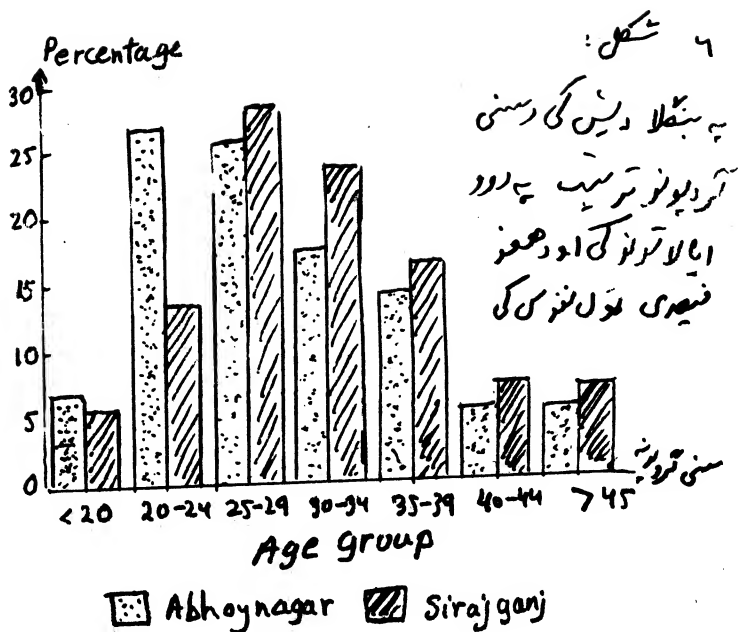 Percentage
۲ شکل:
په بنګلا دیش کی د سنی
ګروپونو ترتیب په دوو
ایالاتونو کی او د هغو
فیصدی ټول نفوس کی
30
25
20
15
10
5
0
<20 20-24 25-29 30-34 35-39 40-44 >45
سنی ګروپونه
Age group
Abhoynagar Sirajganj